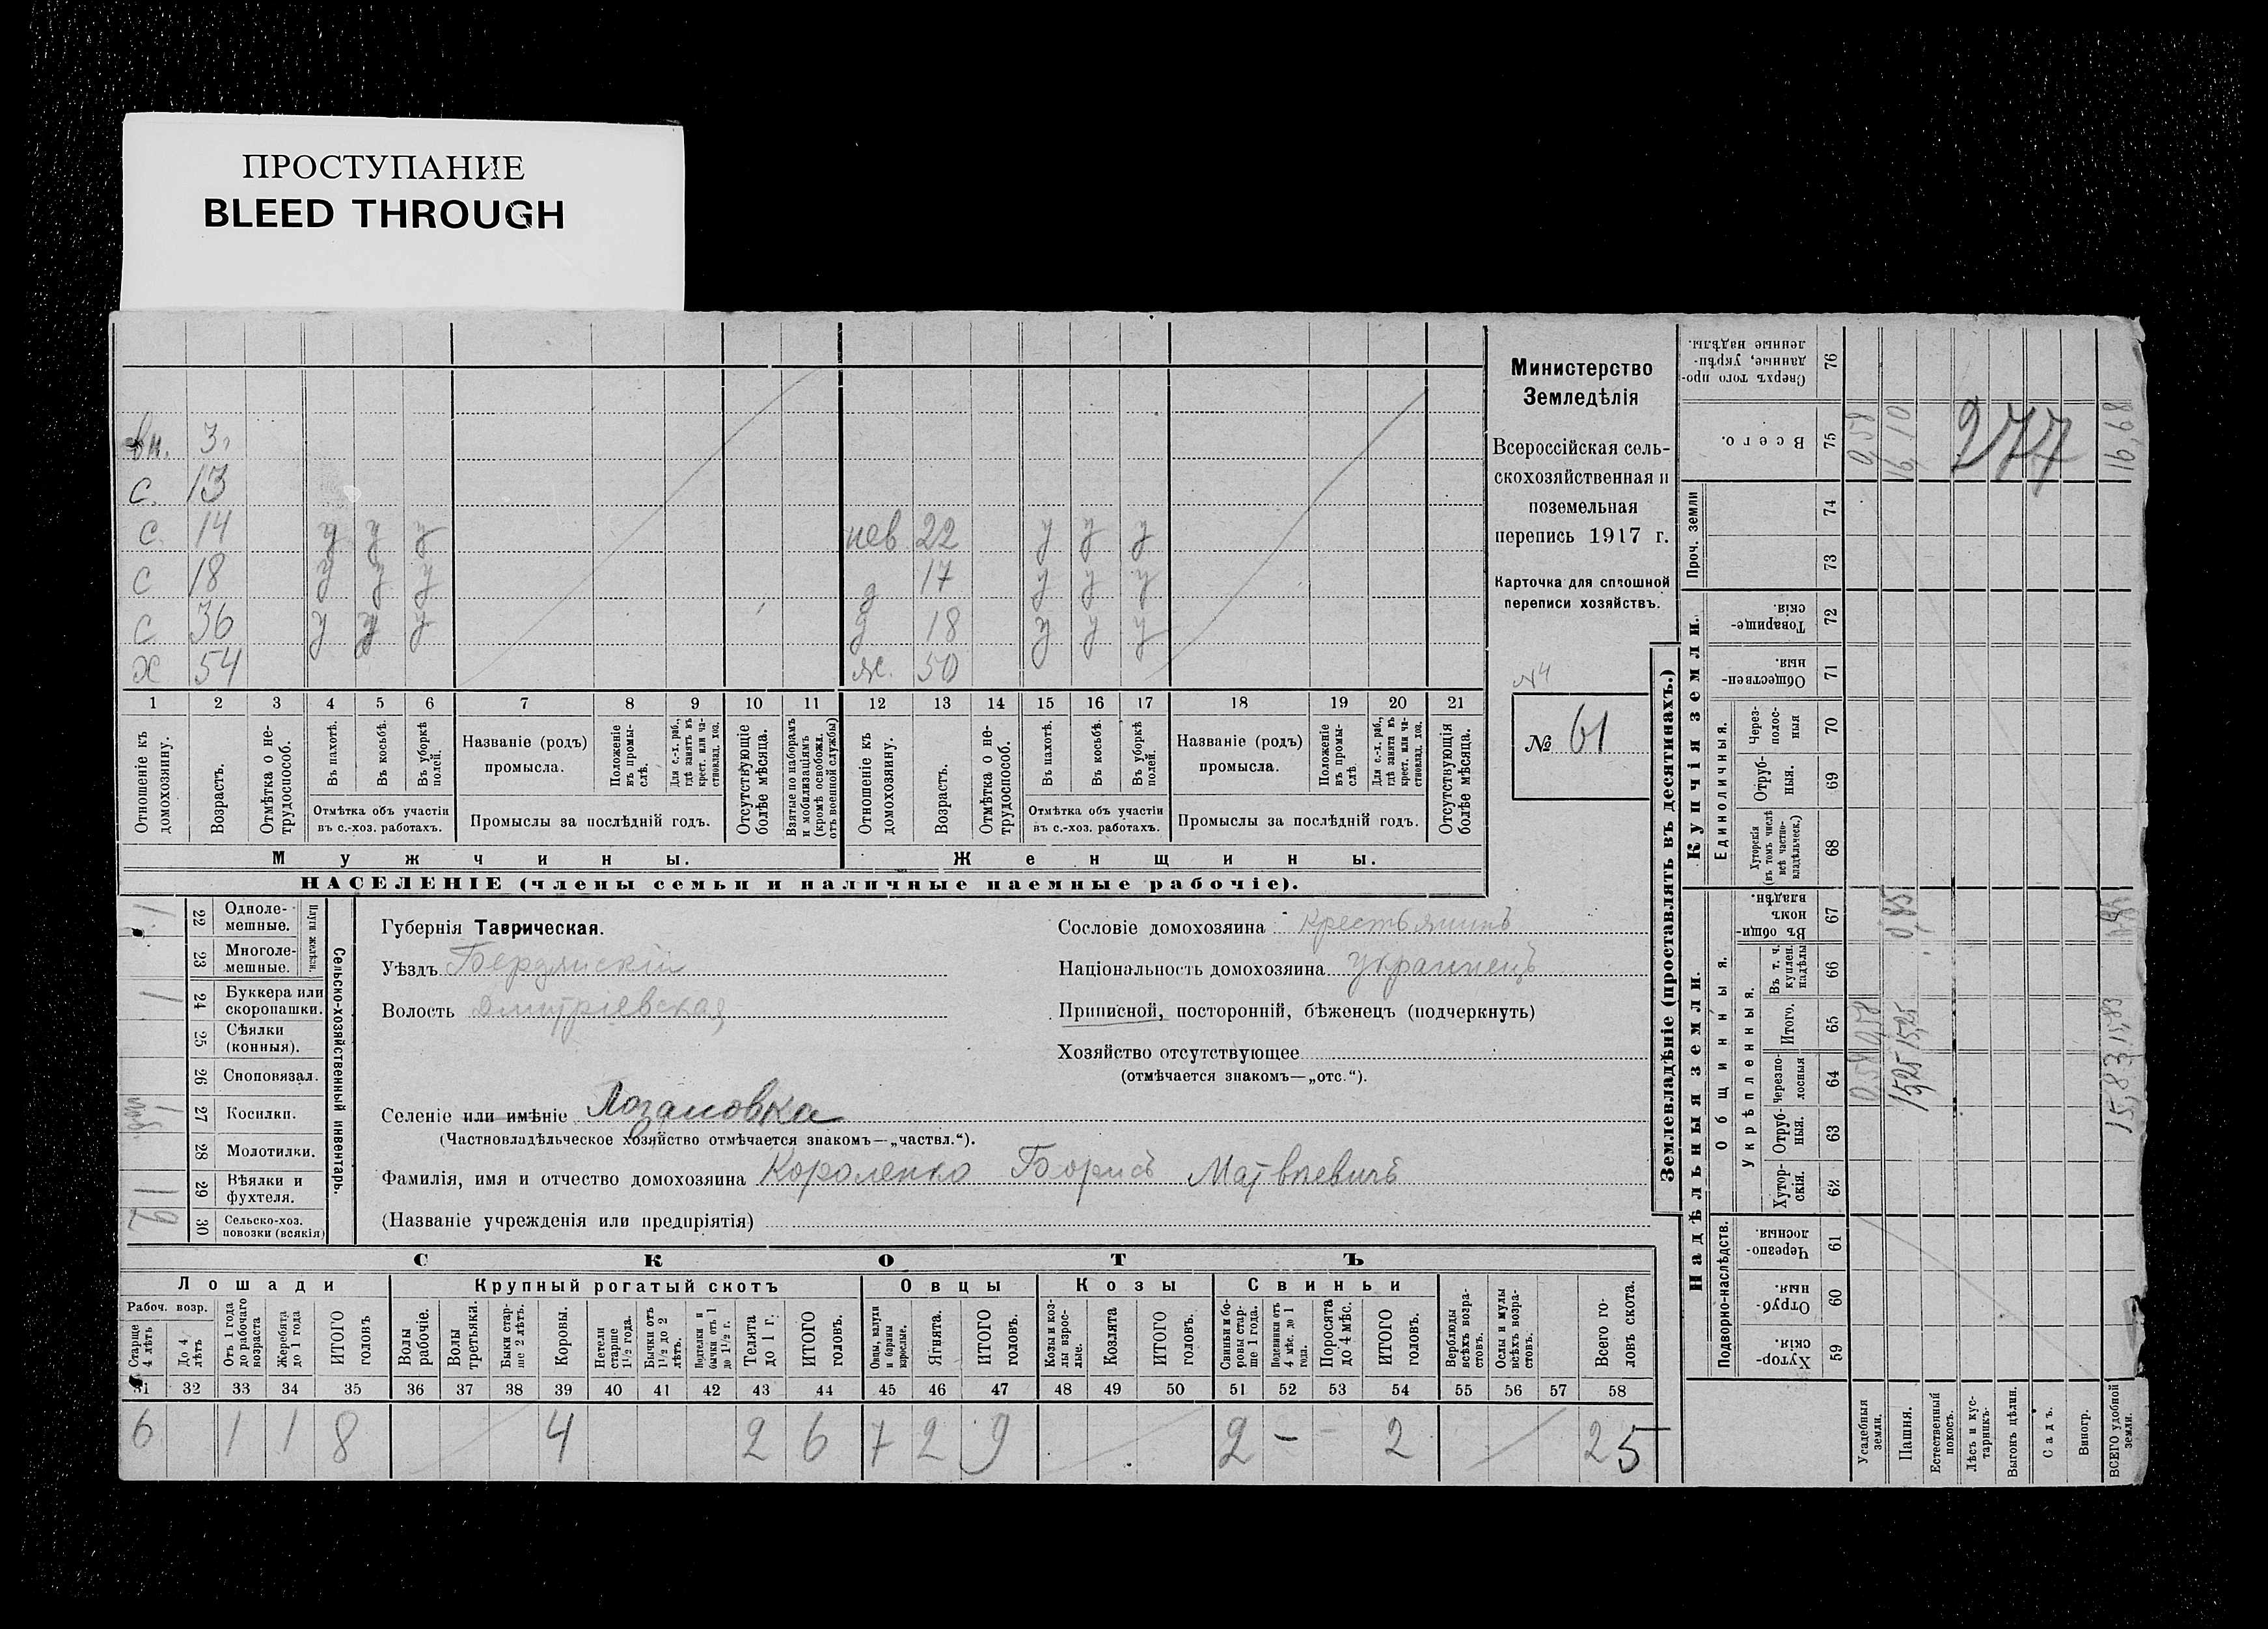 ПРОСТУПАНИЕ
BLEED THROUGH
вн. 3
с. 13
с 14 у у у нев 22 у у у
с 18 у у у д 17 у у у
с 36 у у у д 18 у у у
х 54 ж. 50
1 2 3 4 5 6 7 8 9 10 11 12 13 14 15 16 17 18 19 20 21
Отношеніе къ домохозяину.
Возрастъ.
Отмѣтка о не-трудоспособ.
Въ пахотѣ.
Въ косьбѣ.
Въ уборкѣ полей.
Отмѣтка объ участіи
въ с.-хоз. работахъ.
Названіе (родъ)
промысла.
Положеніе въ промы-слѣ.
Для с.-х. раб., гдѣ занятъ въ крест. или ча-стновлад. хоз.
Промыслы за послѣдній годъ.
Отсутствующіе болѣе мѣсяца.
Взятые по наборамъ и мобилизаціямъ (кромѣ освобожд. отъ военной службы)
Отношеніе къ домохозяину.
Возрастъ.
Отмѣтка о не-трудоспособ.
Въ пахотѣ.
Въ косьбѣ.
Въ уборкѣ полей.
Отмѣтка объ участіи
въ с.-хоз. работахъ.
Названіе (родъ)
промысла.
Положеніе въ промы-слѣ.
Для с.-х. раб., гдѣ занята въ крест. или ча-стновлад. хоз.
Промыслы за послѣдній годъ.
Отсутствующія болѣе мѣсяца.
Мужчины.
Женщины.
НАСЕЛЕНІЕ (члены семьи и наличные наемные рабочіе).
Министерство
Земледѣлія
Всероссійская сель-
скохозяйственная и
поземельная
перепись 1917 г.
Карточка для сплошной
переписи хозяйствъ.
№4
№ 61
Сельско-хозяйственный инвентарь.
22 Одноле-мешные. 1
23 Многоле-мешные.
24 Буккера или скоропашки. 1
25 Сѣялки (конныя).
26 Сноповязал.
27 Косилки. 1
28 Молотилки.
29 Вѣялки и фухтеля. 1
30 Сельско-хоз. повозки (всякія) 2
Губернія Таврическая.
Уѣздъ Бердянскій
Волость Дмитріевская
Сословіе домохозяина крестьянинъ
Національность домохозяина украинецъ
Приписной, посторонній, бѣженецъ (подчеркнуть)
Хозяйство отсутствующее
(отмѣчается знакомъ—„отс.“).
Селеніе или имѣніе Лозановка
(Частновладѣльческое хозяйство отмѣчается знакомъ—„частвл.“).
Фамилія, имя и отчество домохозяина Короленко Борисъ Матвѣевичъ
(Названіе учрежденія или предпріятія)
СКОТЪ
Лошади Крупный рогатый скотъ Овцы Козы Свиньи
Рабоч. возр.
Старше 4 лѣтъ
До 4 лѣтъ
Отъ 1 года до рабочаго возраста
Жеребята до 1 года
ИТОГО головъ
Волы рабочіе.
Волы третьяки.
Быки стар-ше 2 лѣтъ.
Коровы.
Нетели старше 1½ года.
Бычки отъ 1½ до 2 лѣтъ.
Подтелки и бычки отъ 1 до 1½ г.
Телята до 1 г.
ИТОГО головъ.
Овцы, валухи и бараны взрослые.
Ягнята.
ИТОГО головъ.
Козы и коз-лы взрос-лые.
Козлята
ИТОГО головъ.
Свиньи и бо-ровы стар-ше 1 года.
Подсвинки отъ 4 мѣс. до 1 года.
Поросята до 4 мѣс.
ИТОГО головъ.
Верблюды всѣхъ возра-стовъ.
Ослы и мулы всѣхъ возра-стовъ.
Всего го-ловъ скота.
31 32 33 34 35 36 37 38 39 40 41 42 43 44 45 46 47 48 49 50 51 52 53 54 55 56 57 58
6 1 1 8 4 2 6 7 2 9 2 - - 2 25
Землевладѣніе (проставлять въ десятинахъ.)
Надѣльныя земли. Купчія земли.
Подворно-наслѣдств.
Общинныя.
Укрѣпленныя.
Единоличныя.
Проч. земли
Хутор-скія. 59
Отруб-ныя. 60
Черезпо-лосныя. 61
Хутор-скія. 62
Отруб-ныя. 63
Черезпо-лосныя 64
Итого. 65
Въ т. ч. куплен. надѣлы 66
Въ общин-номъ владѣн. 67
Хуторскія (въ томъ числѣ всѣ частно-владѣльческ.) 68
Отруб-ныя. 69
Через-полос-ныя 70
Обществен-ныя. 71
Товарище-скія. 72
73
74
Всего. 75
Сверхъ того про-данные, укрѣп-ленные надѣлы. 76
Усадебныя земли. 0,58 0,58 0,58
Пашня. 15,25 15,25 0,85 16,10
Естественный покосъ.
Лѣсъ и кус-тарникъ.
Выгонъ цѣлин.
Садъ.
Виногр.
ВСЕГО удобной земли. 15,83 15,83 16,68
277